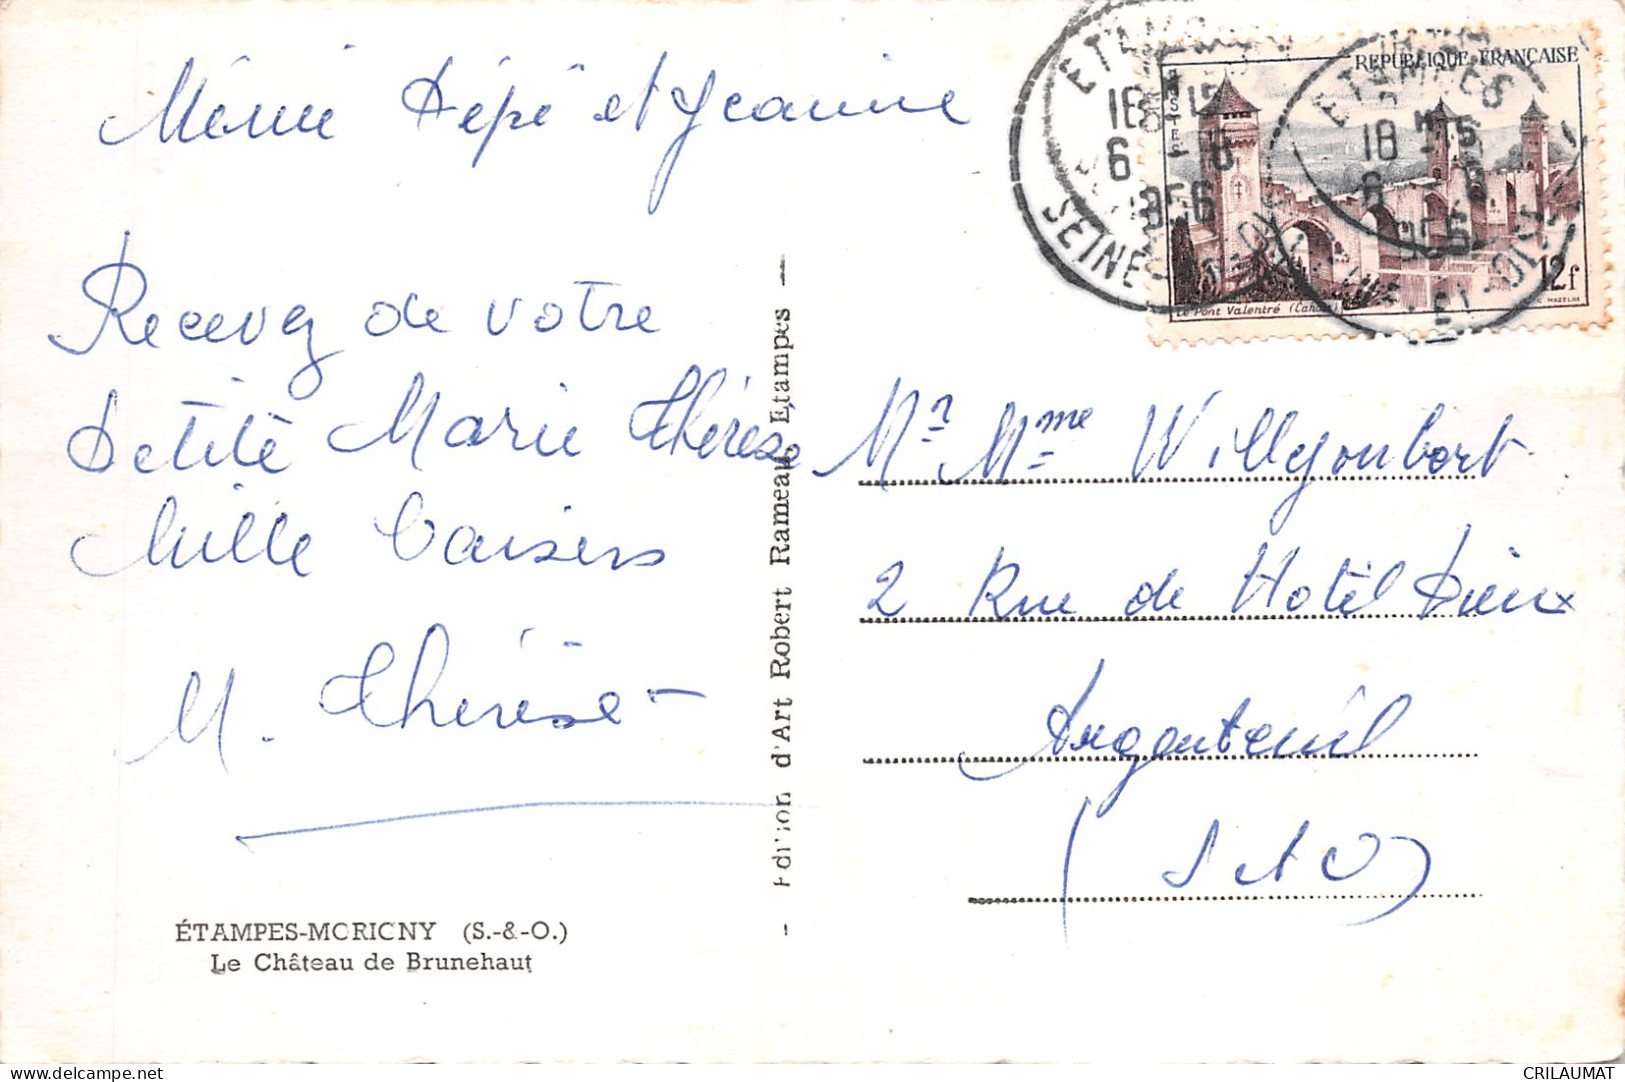 Mémé Pépé et Jeanine
Recevez de votre
petite Marie Thérèse
Mille baisers
M. Thérèse
ÉTAMPES-MORIGNY (S.-&-O.)
Le Château de Brunehaut
- Edition d'Art Robert Rameau, Etampes -
ETAMPES
18 H 15
6 - 8
1956
SEINE
ETAMPES
18 H 15
6 - 8
1956
SEINE-ET-OISE
REPUBLIQUE FRANÇAISE
12f
Le Pont Valentré (Cahors)
C. MAZELIN
Mr Mme Willyoubort
2 Rue de Hotel Dieux
Argenteuil
(S et O)
CRILAUMAT